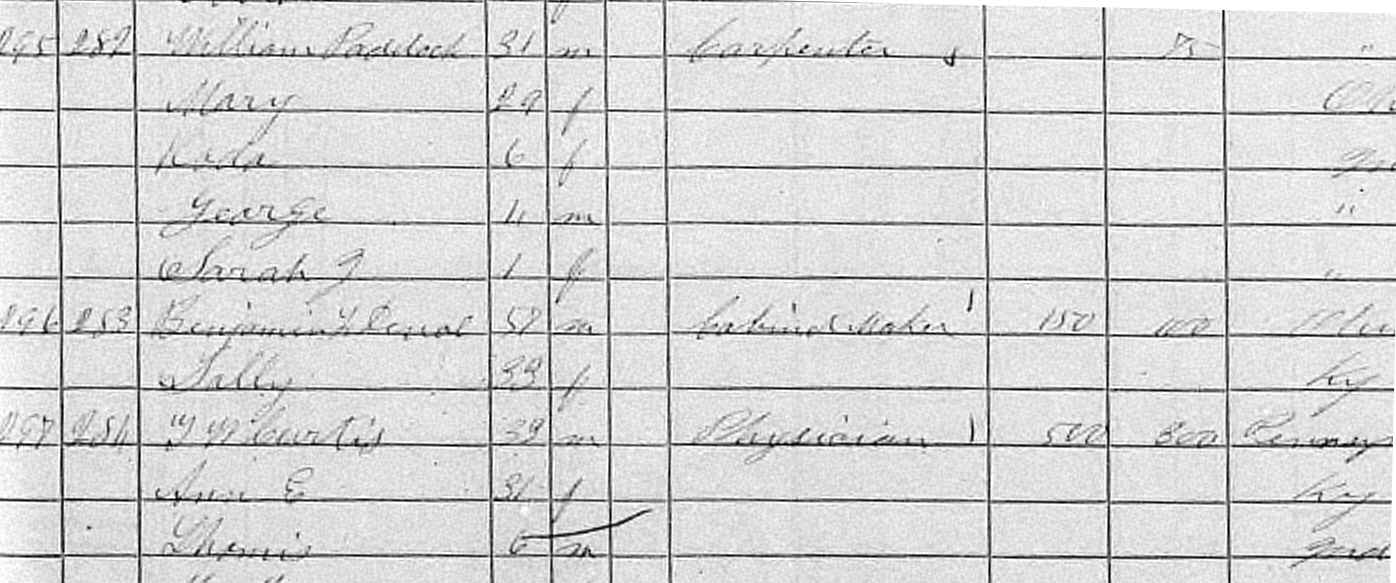 295 282 William Paddock 31 m Carpenter 75 "
Mary 29 f
6 f
George 4 m "
Sarah J 1 f "
296 283 Benjamin 52 m Cabinet Maker 1 150 100
Sally 33 f Ky
297 284 Curtis 39 m Physician 1 500 300
Ann E 31 f Ky
Thomis 6 m Ind